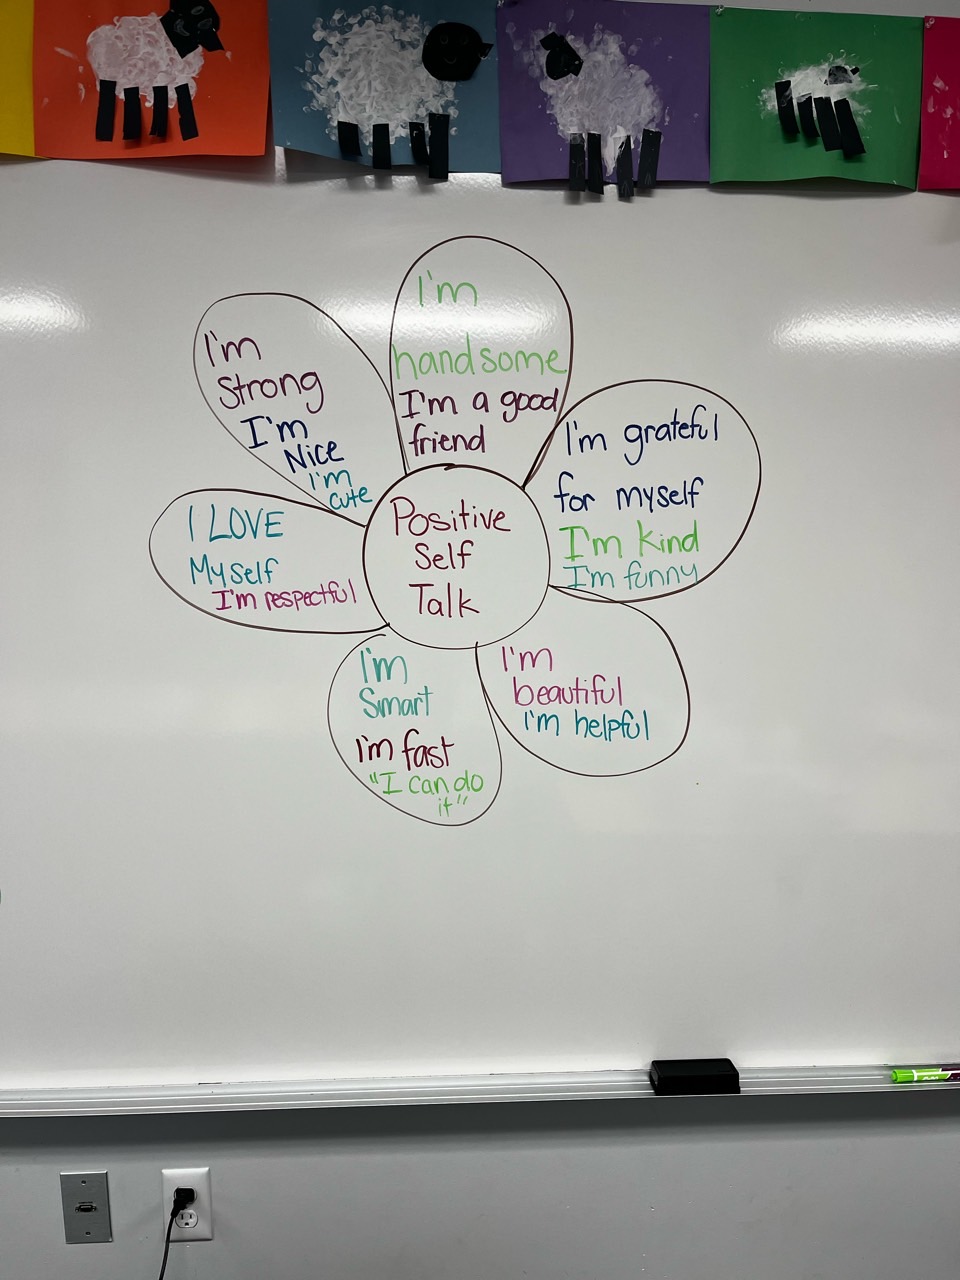 Positive
Self
Talk
I'm
handsome
I'm a good
friend
I'm grateful
for myself
I'm kind
I'm funny
I'm
beautiful
I'm helpful
I'm
Smart
I'm fast
"I can do
it"
I LOVE
Myself
I'm respectful
I'm
Strong
I'm
Nice
I'm
cute